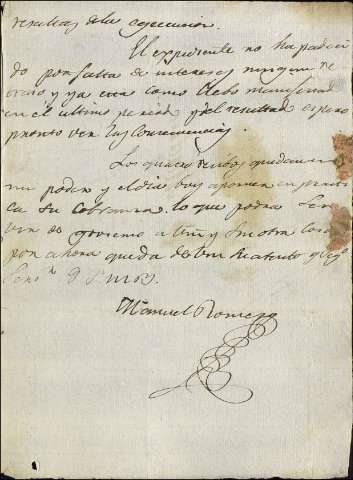 resultas dela execucion.
El expediente no ha padeci
do por falta de intereses ningun re
traso y ya esta como debo manifestar
en el ultimo periodo y del resultado espero
pronto ver las consecuencias.
Los quales quedan en
mi poder y el dia hoy aponen en practi
ca su cobranza lo que podra ser
vir de govierno a Vm y sin otra cosa
por ahora queda de Vm su atento y seg.
Serv.r Q S M B.
Manuel Romero